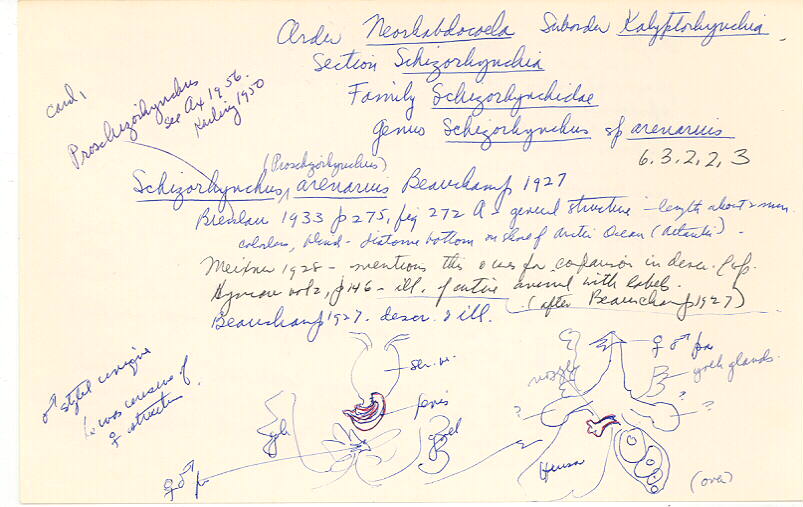 Order Neorhabdocoela Suborder Kalyptorhynchia
Section Schizorhynchia
Family Schizorhynchidae
Genus Schizorhynchus sp arenarius
6.3.2,2,3
card 1
Proschizorhynchus
see Ax 1956.
Karling 1950
(Proschizorhynchus)
Schizorhynchus arenarius Beauchamp 1927
Bresslau 1933 p 275, fig 272 A - general structure - length about 2 mm.
colorless, blind - diatome bottom on shore of Arctic Ocean (Atlantic) -
Meixner 1928 - mentions this for comparison in descr. of
Hyman vol 2, p 146 - ill. of entire animal with labels.
(after Beauchamp 1927)
Beauchamp 1927. descr. & ill.
♂ stylet unique
♀ structure
sem. ves.
penis
yolk
♀♂ p
♀♂ pore
yolk glands
nozzle
?
?
Bursa
(over)